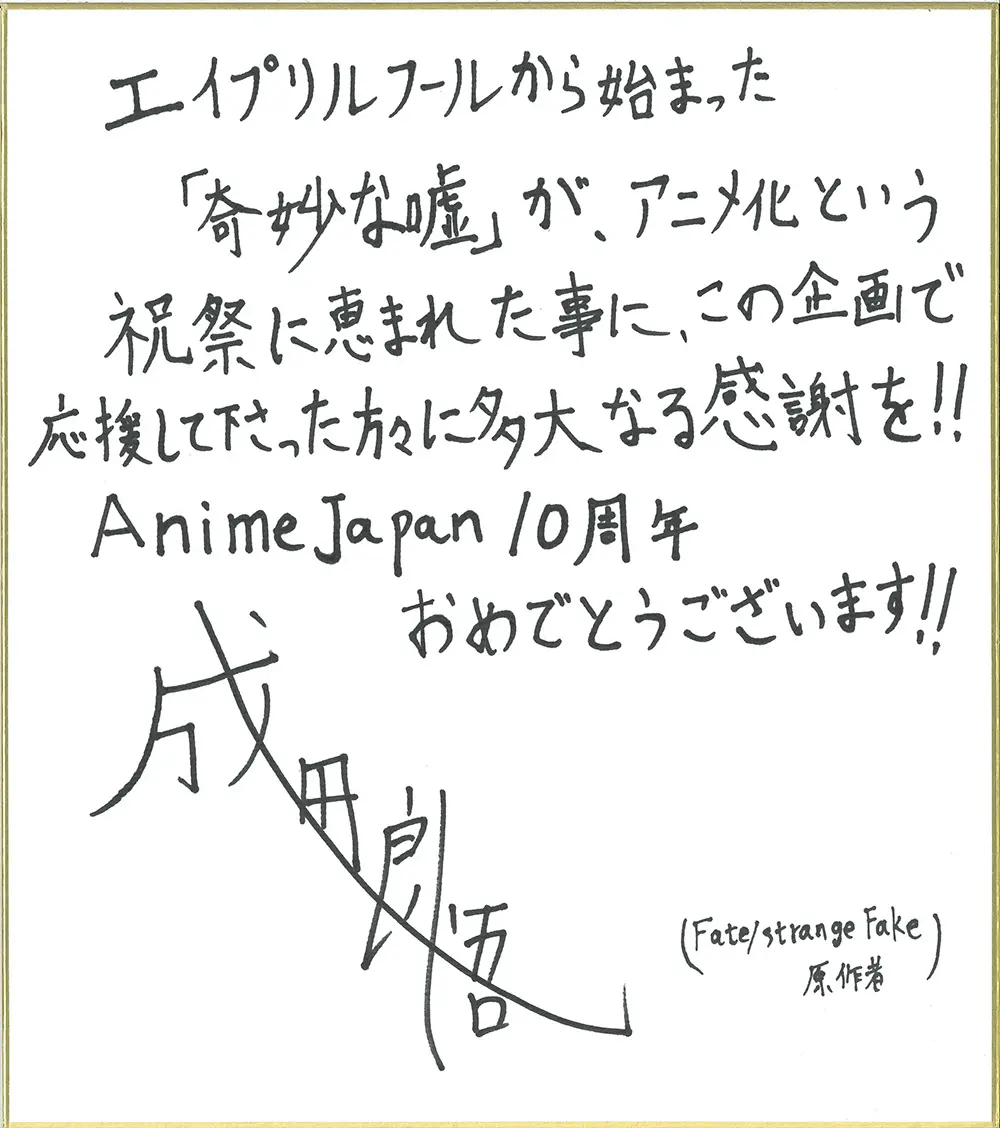 エイプリルフールから始まった
「奇妙な嘘」が、アニメ化という
祝祭に恵まれた事に、この企画で
応援して下さった方々に多大なる感謝を!!
AnimeJapan 10周年
おめでとうございます!!
成田良悟
(Fate/strange Fake
原作者)